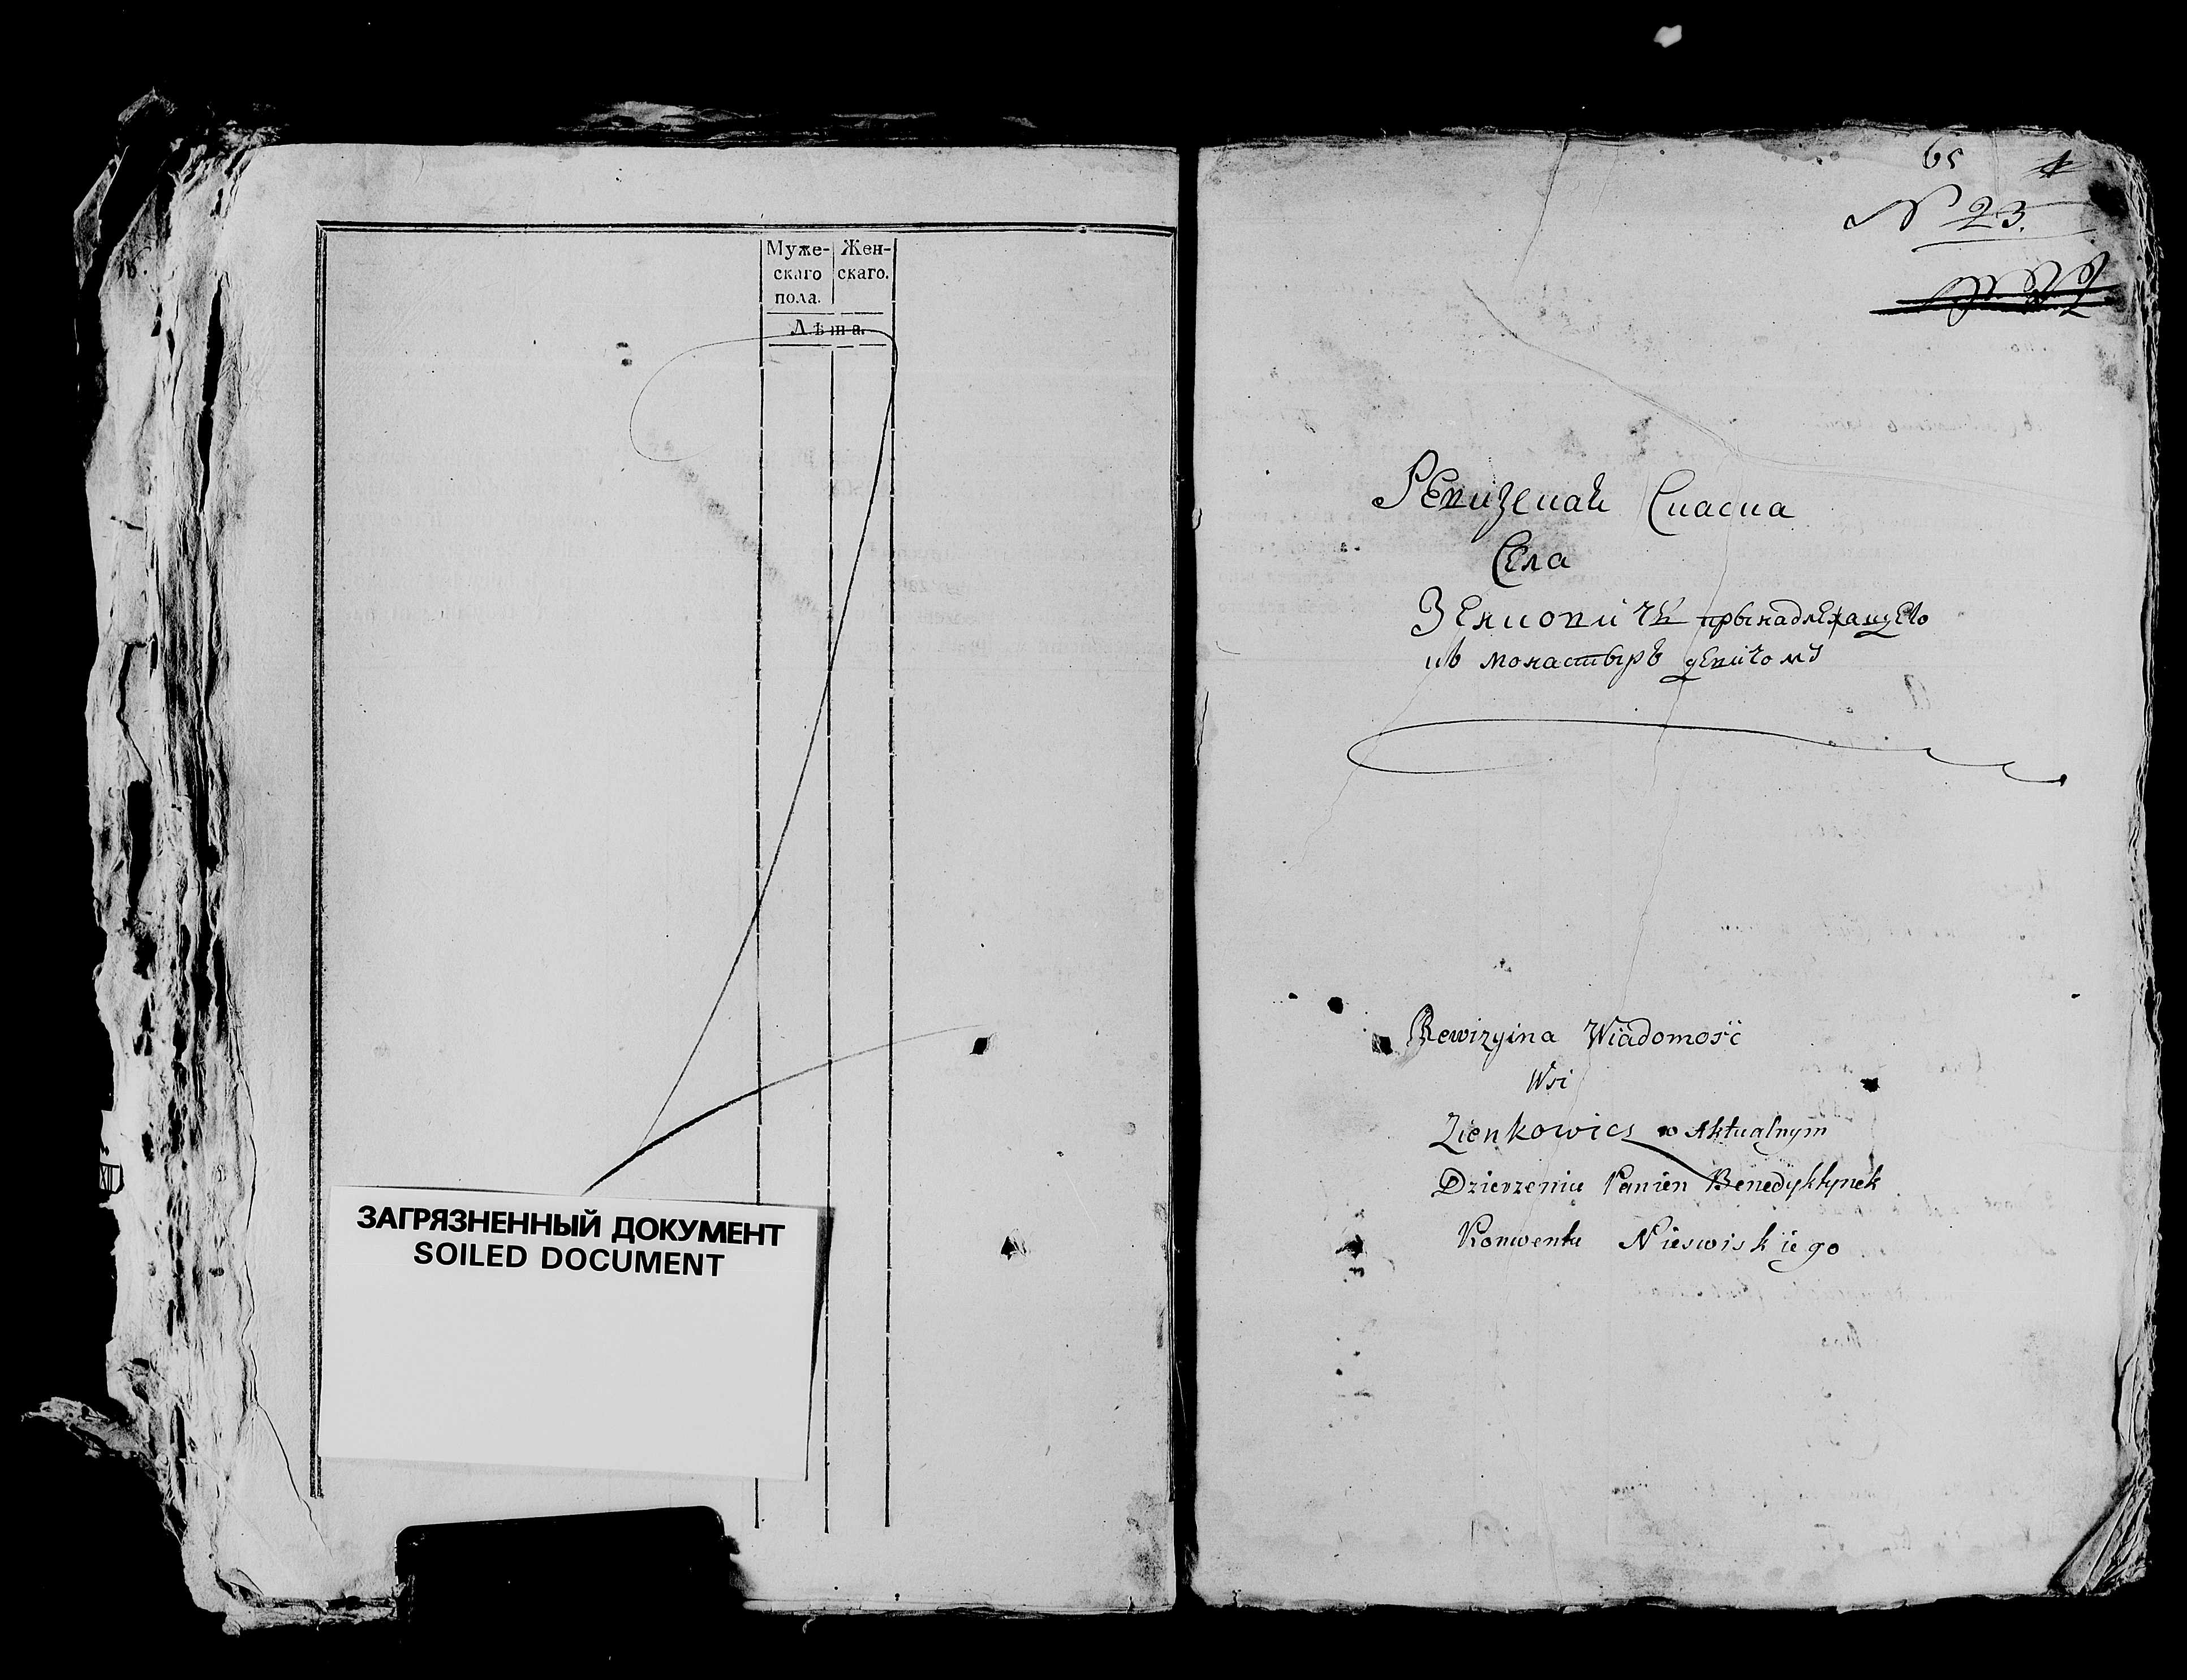 Муже- Жен-
скаго скаго.
пола.
Лѣта.
ЗАГРЯЗНЕННЫЙ ДОКУМЕНТ
SOILED DOCUMENT
65
N 23.
Ревизскаѣ Скаска
Села
Зенкович прынадлежащего
къ монастырѣ девичому
Rewizyina Wiadomość
Wsi
Zienkowicz w Aktualnym
Dzierzeniu Panien Benedyktynek
Konwentu Nieswiskiego